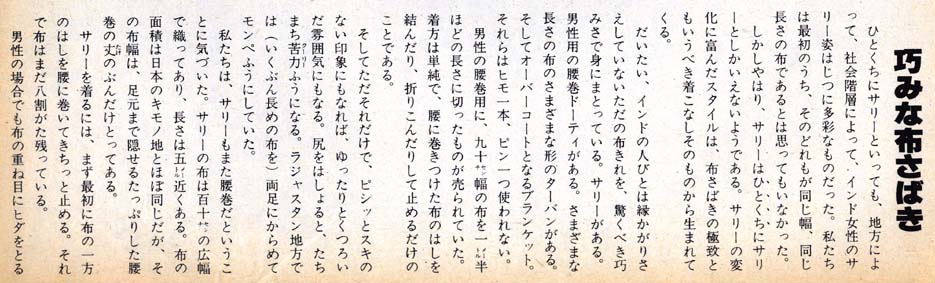 巧みな布さばき
ひとくちにサリーといっても、地方によ
って、社会階層によって、インド女性のサ
リー姿はじつに多彩なものだった。私たち
は最初のうち、そのどれもが同じ幅、同じ
長さの布であるとは思ってもいなかった。
しかしやはり、サリーはひとくちにサリ
ーとしかいえないようである。サリーの変
化に富んだスタイルは、布さばきの極致と
もいうべき着こなしそのものから生まれて
くる。
だいたい、インドの人びとは縁かがりさ
えしていないただの布きれを、驚くべき巧
みさで身にまとっている。サリーがある。
男性用の腰巻ドーティがある。さまざまな
長さの布のさまざまな形のターバンがある。
そしてオーバーコートとなるブランケット。
それらはヒモ一本、ピン一つ使われない。
男性の腰巻用に、九十㌢幅の布を一㍍半
ほどの長さに切ったものが売られていた。
着方は単純で、腰に巻きつけた布のはしを
結んだり、折りこんだりして止めるだけの
ことである。
そしてただそれだけで、ピシッとスキの
ない印象にもなれば、ゆったりとくつろい
だ雰囲気にもなる。尻をはしょると、たち
まち苦力ふうになる。ラジャスタン地方で
は（いくぶん長めの布を）両足にからめて
モンペふうにしていた。
私たちは、サリーもまた腰巻だというこ
とに気づいた。サリーの布は百十㌢の広幅
で織ってあり、長さは五㍍近くある。布の
面積は日本のキモノ地とほぼ同じだが、そ
の布幅は、足元まで隠せるたっぷりした腰
巻の丈のぶんだけとってある。
サリーを着るには、まず最初に布の一方
のはしを腰に巻いてきちっと止める。それ
で布はまだ八割がた残っている。
男性の場合でも布の重ね目にヒダをとる